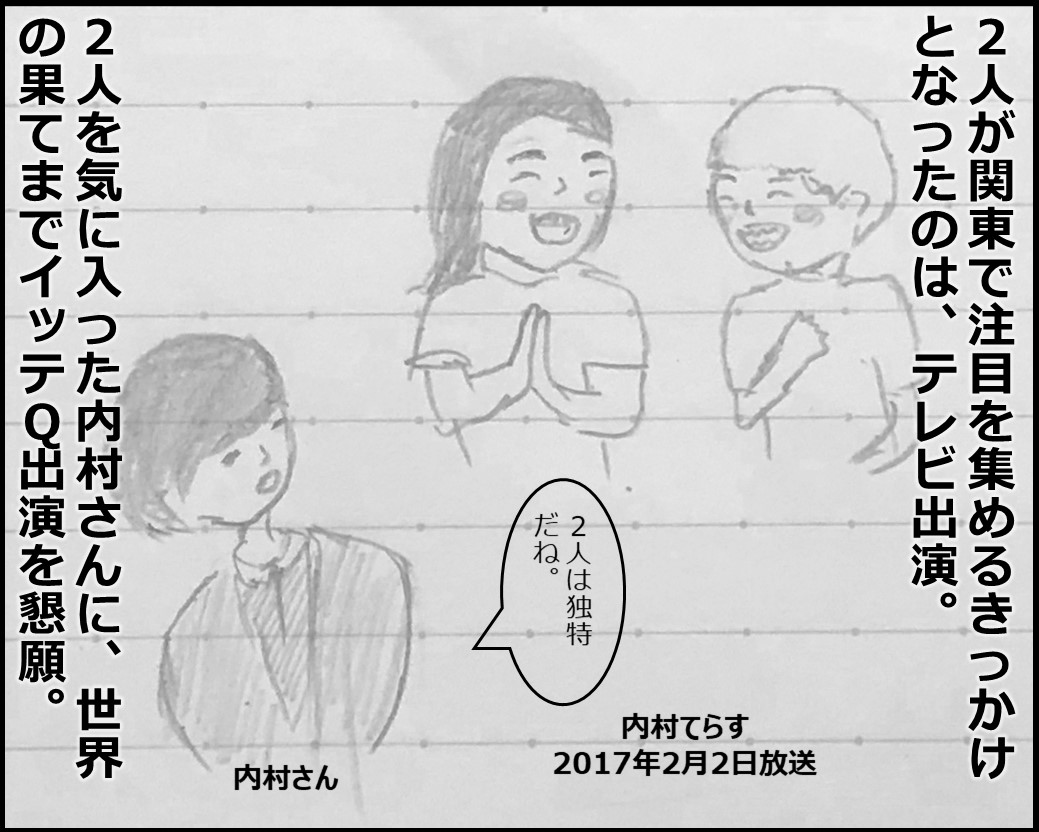 ２人が関東で注目を集めるきっかけ
となったのは、テレビ出演。
２人は独特
だね。
内村てらす
2017年2月2日放送
内村さん
２人を気に入った内村さんに、世界
の果てまでイッテＱ出演を懇願。